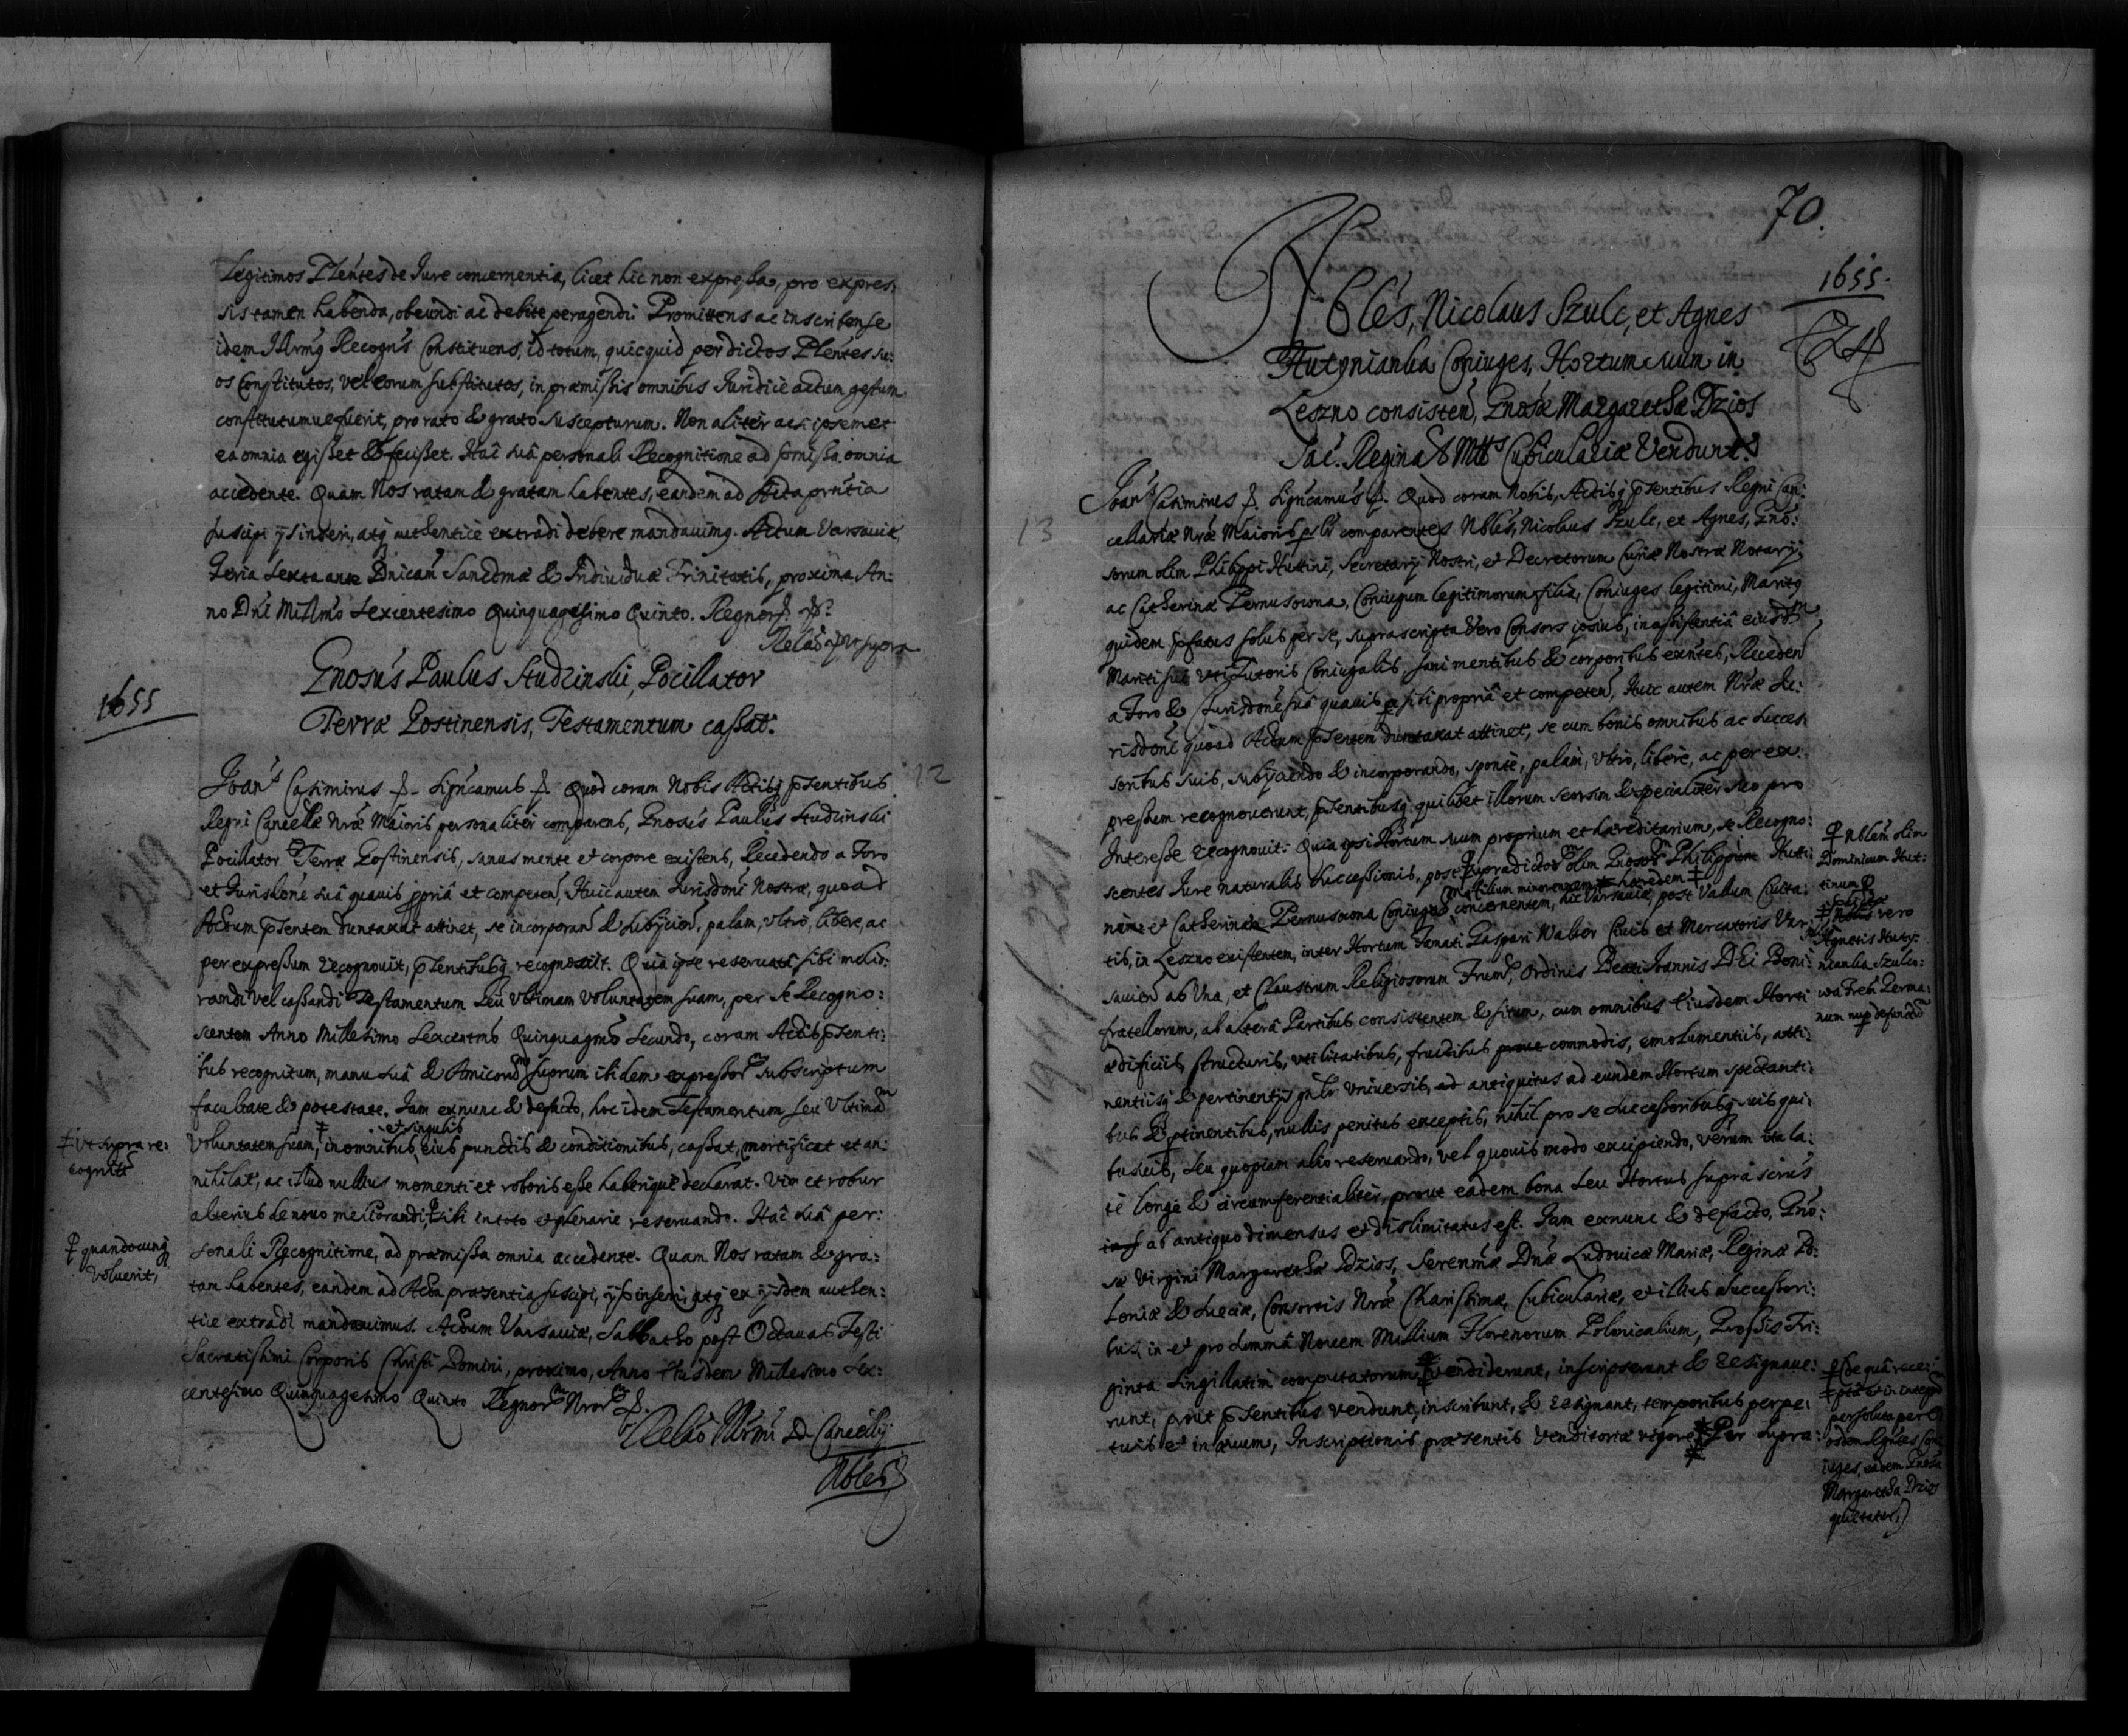 Legitimos Plen̄tes de Iure concernentia, licet hic non expressa, pro expres:
sis tamen habenda, obeundi ac debite peragendi Promittens ac inscribens se
idem Recogn̄s Constituens, id totum, quicquid per dictos Plen̄tes su:
os Constitutos, vel eorum substitutos, in præmissis omnibus Iuridice actum gestum
constitutumue fuerit, pro rato & grato suscepturum. Non aliter ac si ipsemet
ea omnia egisset & fecisset. Hac sua personali Recognitione ad p̄missa omnia
accedente. Quam Nos ratam & gratam habentes, eandem ad Acta prn̄tia
suscipi ijs inseri, atq authentice extradi debere mandauimg. Actum Varsauiæ,
Feria Sexta ante Dnicam Sanctmæ & Indiuiduæ Trinitatis, proxima An:
no Dni Millmo Sexcentesimo Quinquagesimo Quinto. Regnor
Relao ut supra
1655
Gnosus Paulus Studzinski, Pocillator
Terræ Gostinensis, Testamentum cassat.
12
Joan̄s Casimirus Signcamus Quod coram Nobis Actibq p̄sentibus
Regni Cancellæ Nræ Maioris personaliter comparens, Gnosus Paulus Studzinski
Pocillator Terræ Gostinensis, sanus mente et corpore existens, Recedendo a Foro
et Iurisdone sua quauis ppria et competen, Huic autem Iurisdoni Nostræ, quoad
Actum p̄sentem duntaxat attinet, se incorporan & subijcien, palam, vltro, libere, ac
per expressum recognouit, p̄sentibusq recognoscit. Quia ipse reseruata sibi melio:
randi vel cassandi Testamentum seu Vltimam Voluntatem suam, per se Recogno:
scentem Anno Millesimo Sexcentmo Quinquagmo Secundo, coram Actis p̄senti:
bus recognitum, manu sua & Amicor suorum ibidem expressor subscriptum
facultate & potestate. Iam exnunc & defacto, hoc idem Testamentum seu Vltimam
Voluntatem suam, in omnibus, et singulis eius punctis & conditionibus, cassat, mortificat et an:
nihilat, ac illud nullius momenti et roboris esse haberique declarat. Vim et robur
alterius denouo meliorandi sibi in toto et plenarie reseruando. Hac sua per:
sonali Recognitione, ad præmissa omnia accedente. Quam Nos ratam & gra:
tam habentes, eandem ad Acta præsentia suscipi, ijs inseri, atq ex ijsdem authen:
tice extradi mandauimus. Actum Varsauiæ, Sabbatho post Octauas Festi
Sacratissimi Corporis Christi Domini, proximo, Anno Eiusdem Millesimo Sex:
centesimo Quinquagesimo Quinto Regnor Nror
Relao D. Cancellij
vt supra re:
cognitam
quandocunq
voluerit,
70.
1655.
Nbles, Nicolaus Szulc, et Agnes
Hutynianka Coniuges, Hortum suum in
Leszno consisten, Gnosæ Margarethæ Dzios
Sac. Reginal Mtts Cubiculariæ Vendunt.
13
Joan̄s Casimirus Signcamus Quod coram Nobis, Actibq p̄sentibus Regni Can:
cellariæ Nræ Maioris pslr comparentes Nbles, Nicolaus Szulc, et Agnes, Gno:
sorum olim Philippi Huttini, Secretarij Nostri, et Decretorum Curiæ Nostræ Notarij,
ac Catherinæ Pernusowna, Coniugum legitimorum filia, Coniuges legitimi, Maritg
quidem p̄fatus solus per se, suprascripta vero Consors ipsius, in assistentia eiusdem
Mariti sui vti Tutoris Coniugalis sani mentibus & corporibus exntes, Receden
a Foro & Iurisdone sua quauis sibi propria et competen, Huic autem Nræ Iu:
risdoni quoad Actum p̄sentem duntaxat attinet, se cum bonis omnibus ac succes
soribus suis, subijciendo & incorporando, sponte, palam, vltro, libere, ac per ex:
pressum recognouerunt, p̄sentibusq quilibet illorum seorsim & specialiter suo pro
Interesse recognouit. Quia ipsi Hortum suum proprium et hæreditarium, se Recogno:
scentes Iure naturalis successionis, post supradictos olim Gnosos Philippum Hutti
num et Catherinam Pernusowna Coniuges filium minorennem hæredem concernentem, hic Varsauiæ, post Vallum Ciuita:
tis, in Leszno existentem, inter Hortum Famati Gaspari Walter Ciuis et Mercatoris Var:
sauien ab Vna, et Claustrum Religiosorum Frum, Ordinis Beati Ioannis Dei Boni
fratellorum, ab altera Partibus consistentem & situm, cum omnibus Eiusdem Horti
ædificijs, structuris, vtilitatibus, fructibus commodis, emolumentis, atti:
nentiisq & pertinentijs gnlr vniuersis, ad antiquitus ad eundem Hortum spectanti:
bus & ptinentibus, nullis penitus exceptis, nihil pro se successoribusq suis qui:
busuis, seu quopiam alio reseruando, vel quouis modo excipiendo, verum ita la:
te longe & circumferentialiter, prout eadem bona seu Hortus supra
ab antiquo dimensus et dislimitatus est. Iam exnunc & defacto, Gno:
sæ Virgini Margarethæ Dzios, Serenmæ Dnæ Ludouicæ Mariæ, Reginæ Po:
loniæ & Sueciæ, Consortis Nræ Charissimæ, Cubiculariæ, et illius successori:
bus, in et pro summa Nouem Millium Florenorum Polonicalium, Grossis Tri:
ginta singillatim computatorum vendiderunt, inscripserunt & resignaue:
runt, prout p̄sentibus vendunt, inscribunt, & resignant, temporibus perpe:
tuis et in æuum, Inscriptionis præsentis venditoriæ vigore Per supra:
Nblem olim
Dominicum Hut:
tinum
vero
Agnetis Huty:
nianka Szulco:
wa Freh Germa:
num nup defunctum
(de qua rece:
pta et in integro
persoluta per
eosdem Nbles Con
iuges, eadem Gnosa
Margaretha Dzios
quietatur,)